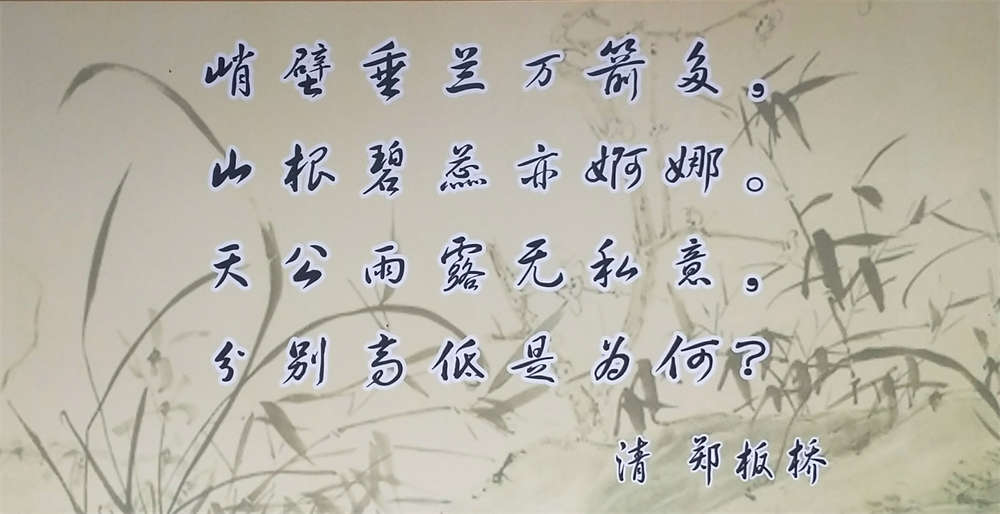 峭壁垂兰万箭多，
山根碧蕊亦婀娜。
天公雨露无私意，
分别高低是为何？
清 郑板桥